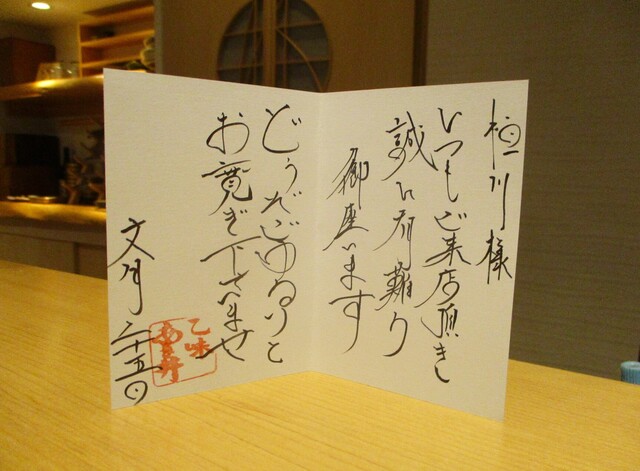 桓川様
いつもご来店頂きまし
誠に有難う
御座います
どうぞごゆるりと
お寛ぎ下さいませ
文月 二十五日
乙味